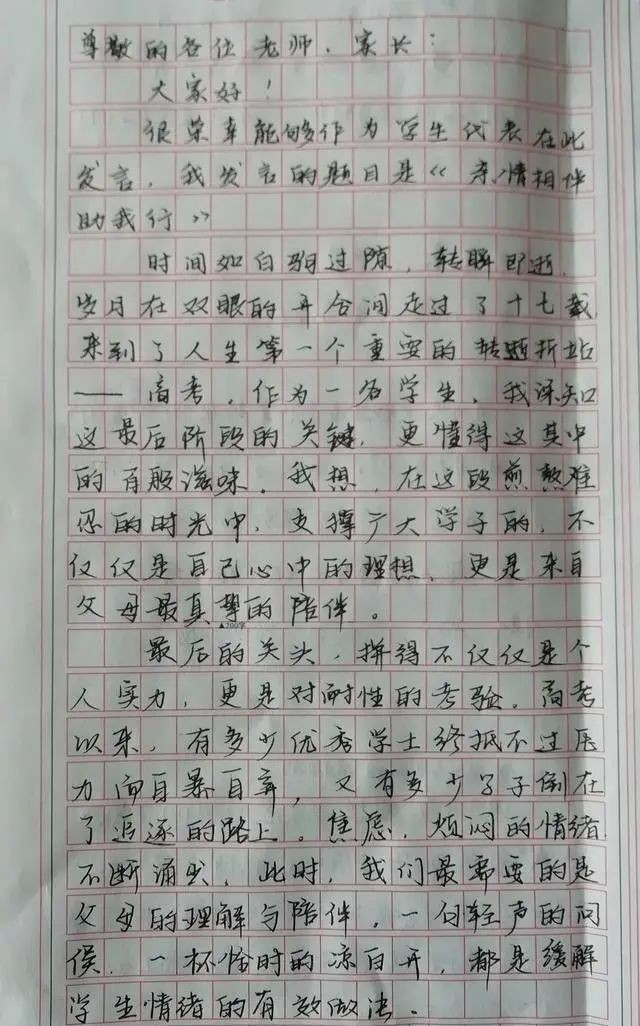 尊敬的各位老师、家长：
大家好！
很荣幸能够作为学生代表在此
发言，我发言的题目是《亲情相伴
助我行》
时间如白驹过隙，转瞬即逝，
岁月在双眼的开合间走过了十七载
来到了人生第一个重要的转折站
——高考，作为一名学生，我深知
这最后阶段的关键，更懂得这其中
的百般滋味。我想，在这段煎熬难
忍的时光中，支撑广大学子的，不
仅仅是自己心中的理想，更是来自
父母最真挚的陪伴。
▲200字
最后的关头，拼得不仅仅是个
人实力，更是对耐性的考验。高考
以来，有多少优秀学士终抵不过压
力而自暴自弃，又有多少学子倒在
了追逐的路上。焦虑、烦闷的情绪
不断涌出，此时，我们最需要的是
父母的理解与陪伴，一句轻声的问
侯，一杯恰时的凉白开，都是缓解
学生情绪的有效做法。